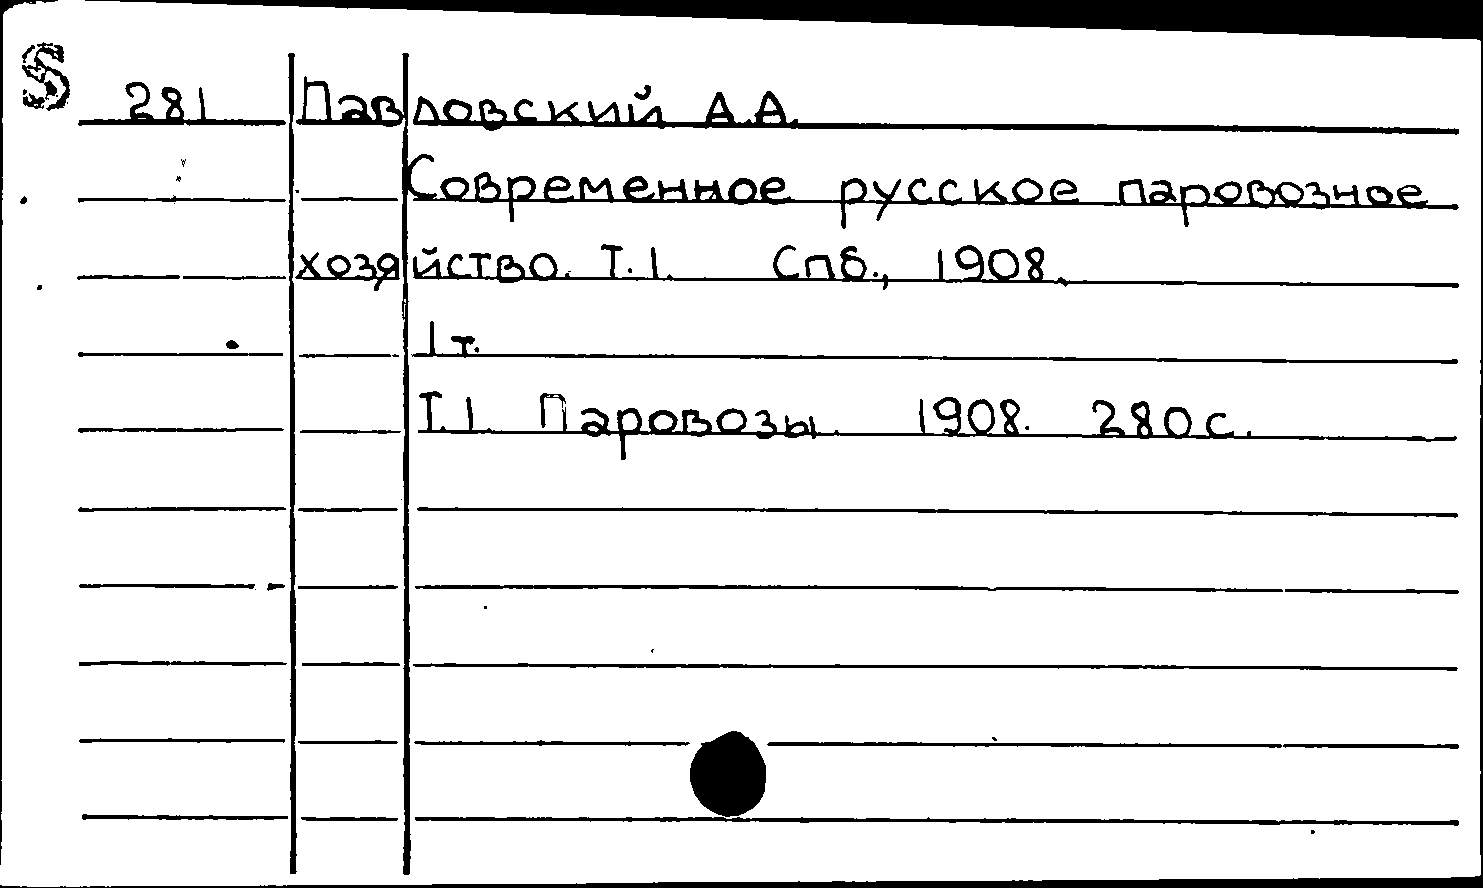 S
281 Павловский А.А.
Современное русское паровозное
хозяйство. Т.1. Спб., 1908.
1 т.
Т.1. Паровозы. 1908. 280 с.